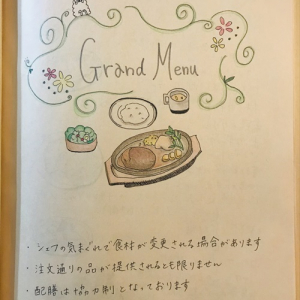 Grand Menu
・シェフの気まぐれで食材が変更される場合があります
・注文通りの品が提供されるとも限りません
・配膳は協力制となっております